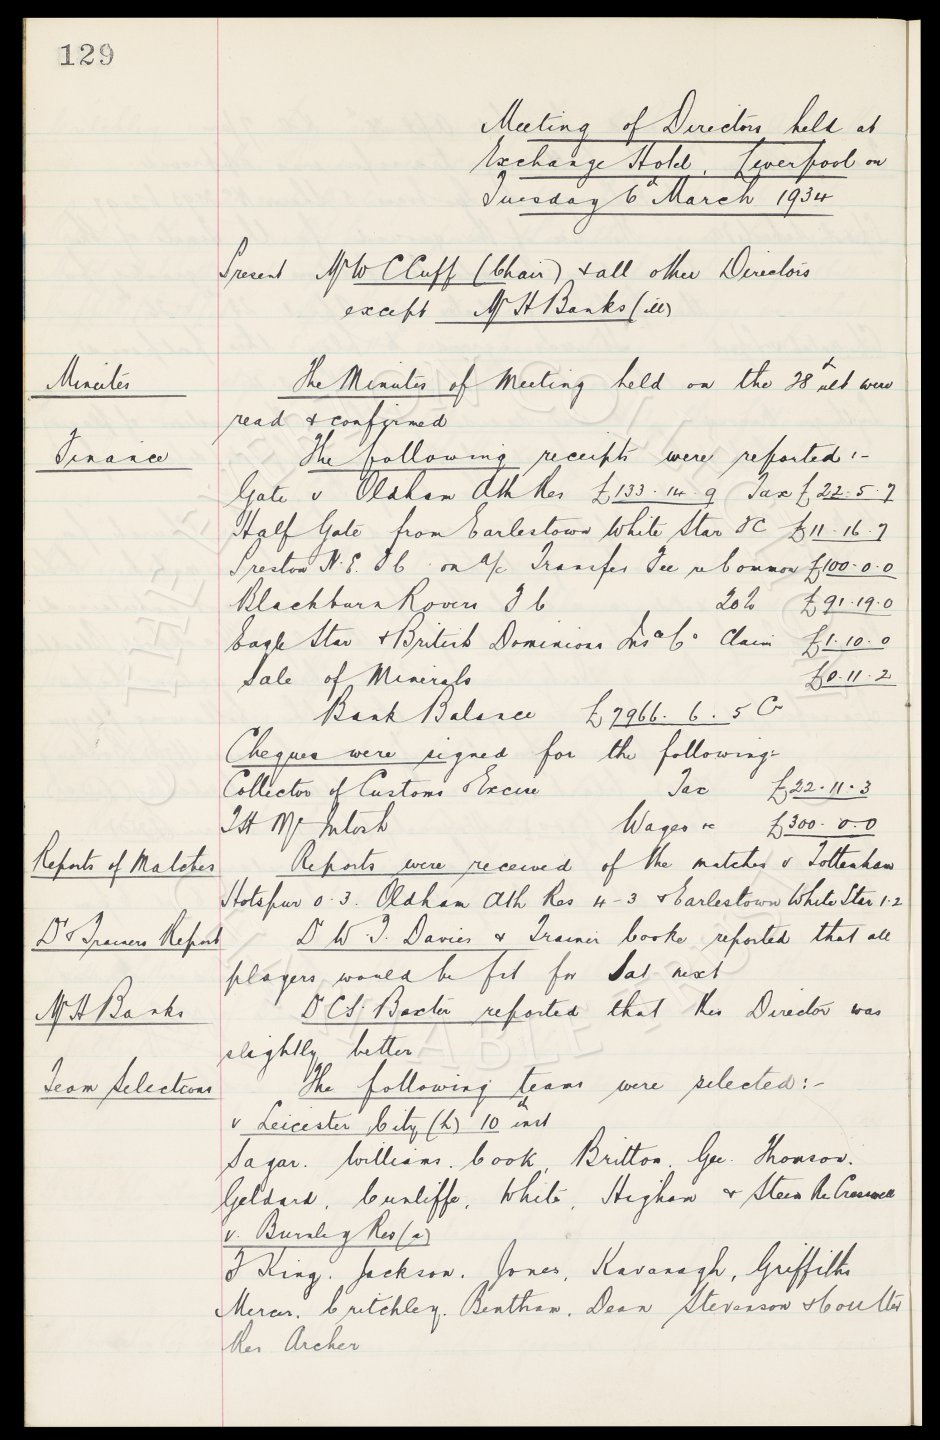 129
Meeting of Directors held at
Exchange Hotel, Liverpool on
Tuesday 6th March 1934
Present Mr W C Cuff (Chair) & all other Directors
except Mr H Banks (ill)
Minutes
The Minutes of Meeting held on the 28th ult were
read & confirmed
Finance
The following receipts were reported :-
Gate v Oldham Ath Res £133.14.9 Tax £22.5.7
Half Gate from Earlestown White Star FC £11.16.7
Preston N.E. F C on a/c Transfer Fee re Common £100.0.0
Blackburn Rovers F C 20% £91.19.0
Eagle Star & British Dominions Insce Co Claim £1.10.0
Sale of Minerals £0.11.2
Bank Balance £7966.6.5 Cr
Cheques were signed for the following:-
Collector of Customs & Excise Tax £22.11.3
T H McIntosh Wages &c £300.0.0
Reports of Matches
Reports were received of the matches v Tottenham
Hotspur 0.3. Oldham Ath Res 4-3 & Earlestown White Star 1.2
Dr & Trainers Report
Dr W. T. Davies & Trainer Cooke reported that all
players would be fit for Sat next
Mr H Banks
Dr C S Baxter reported that this Director was
slightly better
Team Selections
The following teams were selected :-
v Leicester City (h) 10th inst
Sagar. Williams. Cook, Britton. Gee. Thomson.
Geldard, Cunliffe, White, Higham & Stein Re Cresswell
v. Burnley Res (a)
F King. Jackson. Jones, Kavanagh, Griffiths
Mercer. Critchley. Bentham. Dean Stevenson & Coulter
Res Archer